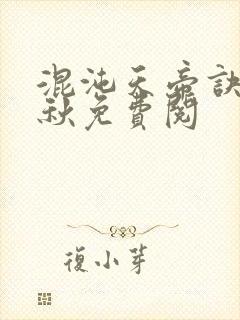 混沌天帝訣
秋免費閱
復小芽